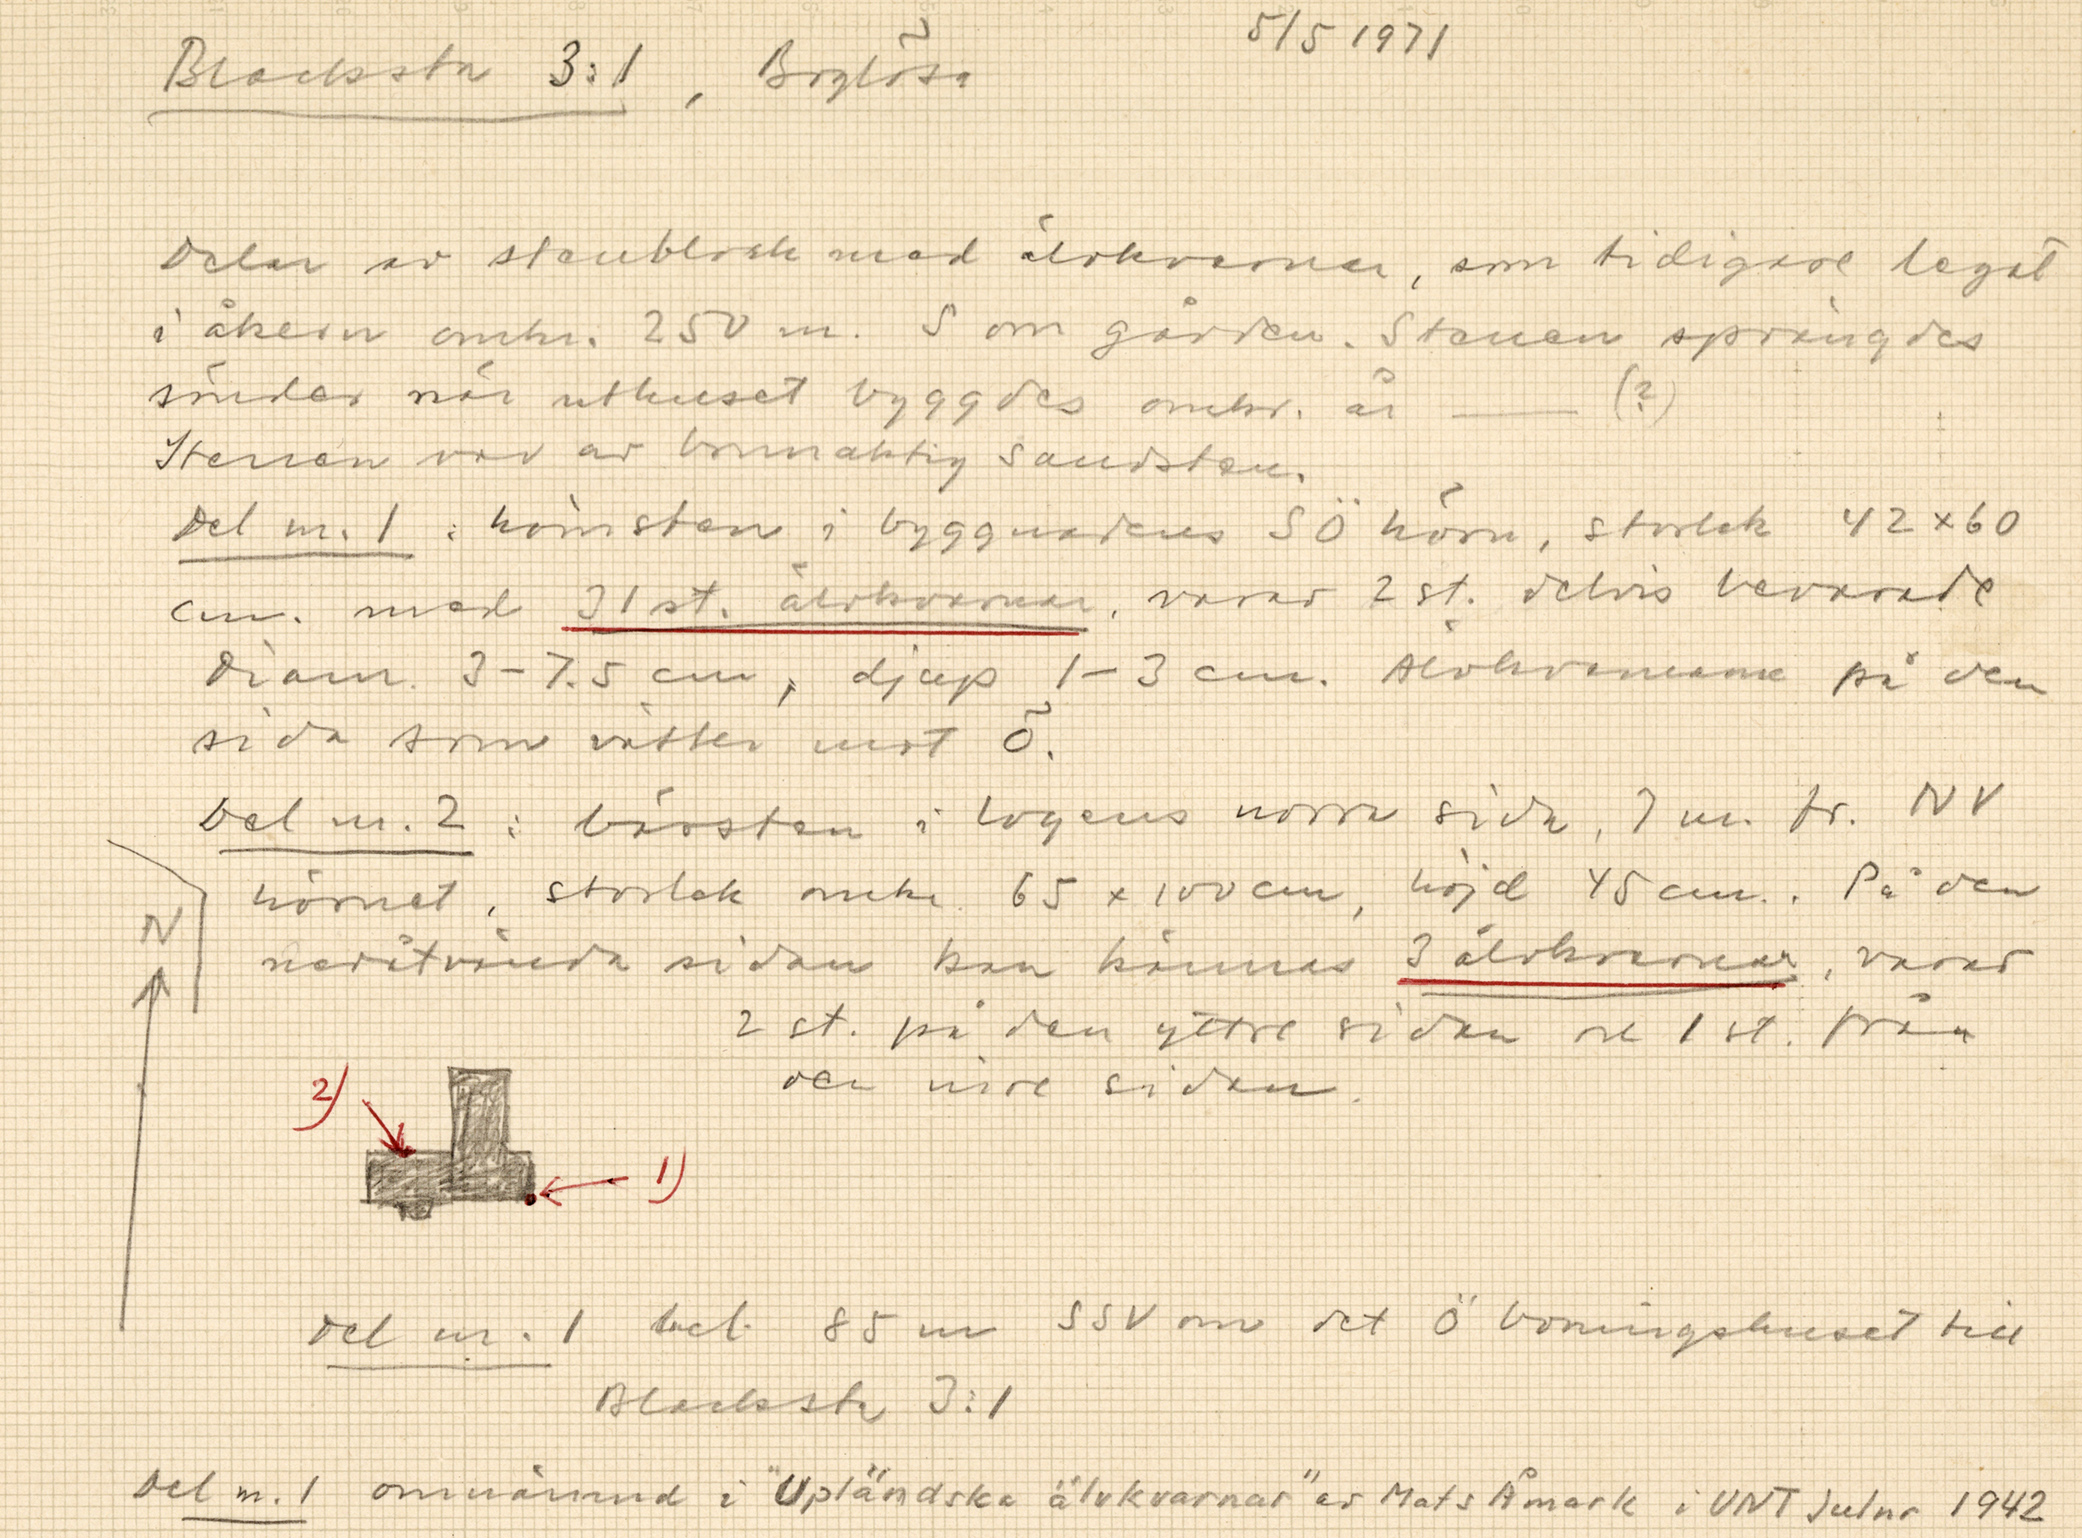 5/5 1971
Blacksta 3:1, Boglösa
Delar av stenblock med älvkvarnar, som tidigare legat
i åkern omkr. 250 m. S om gården. Stenen sprängdes
sönder när uthuset byggdes omkr. år —— (?)
Stenen var av brunaktig sandsten.
Del nr. 1 : hörnsten i byggnadens SÖ hörn, storlek 42 x 60
cm. med 31 st. älvkvarnar, varav 2 st. delvis bevarade
Diam. 3-7.5 cm, djup 1-3 cm. Älvkvarnarna på den
sida som vätter mot Ö.
Del nr. 2 : bärsten i logens norra sida, 7 m. fr. NV
hörnet, storlek omkr. 65 x 100 cm, höjd 45 cm.. På den
N
nedåtvända sidan kan kännas 3 älvkvarnar, varav
2 st. på den yttre sidan och 1 st. från
den inre sidan.
2)
1)
Del nr. 1 bel. 85 m SSV om det Ö boningshuset till
Blacksta 3:1
Del nr. 1 omnämnd i "Upländska älvkvarnar" av Mats Åmark i UNT Julnr 1942